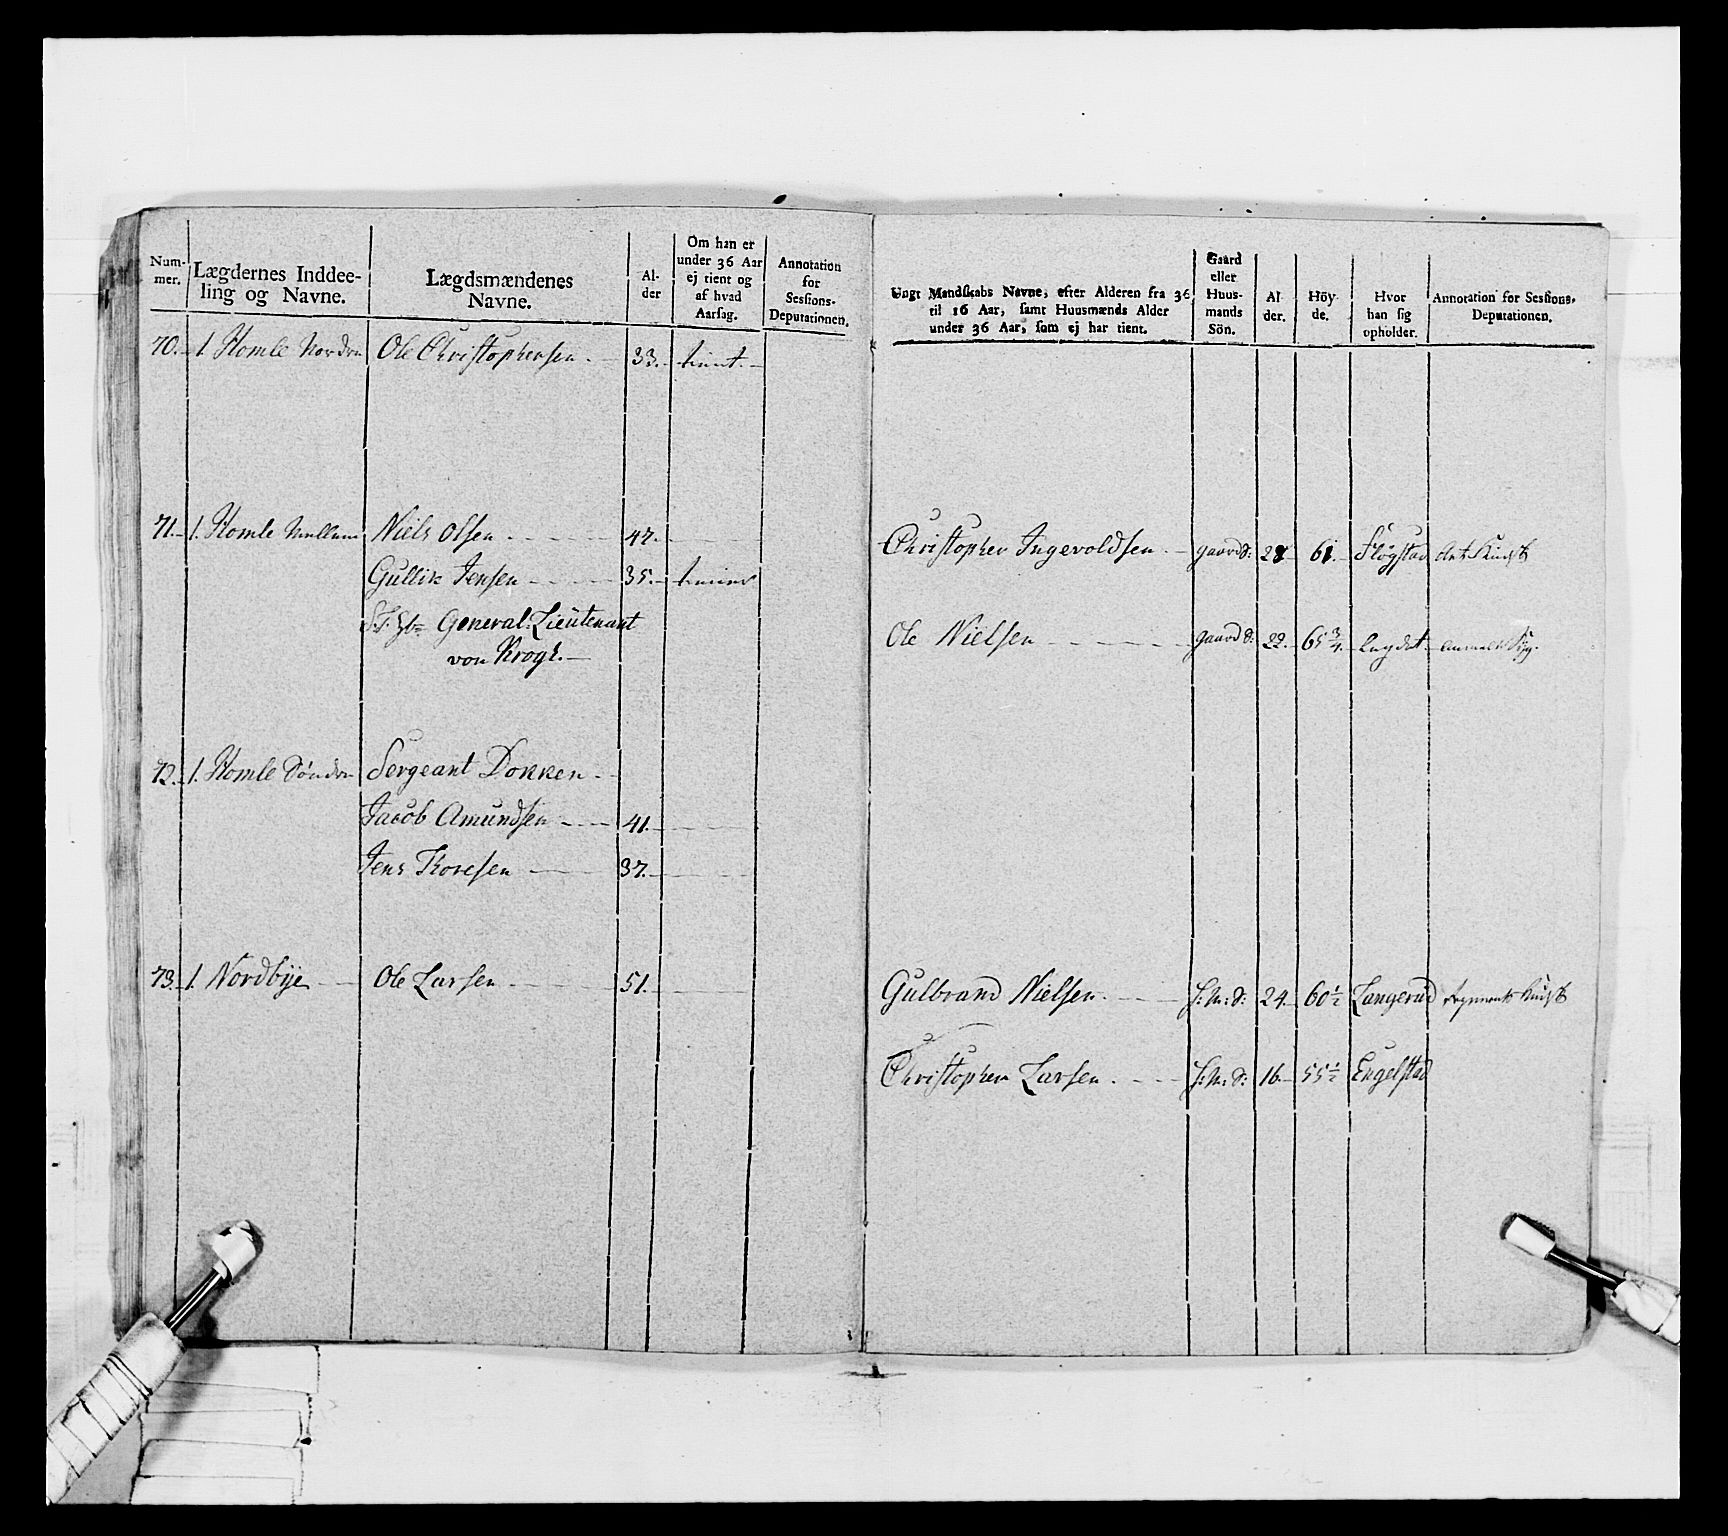 Num-
mer.
Lægdernes Inddee-
ling og Navne.
Lægdsmændenes
Navne.
Al-
der
Om han er
under 36 Aar
ej tient og
af hvad
Aarsag.
Annotation
for
Sessions-
Deputationen.
70. 1. Homle Nordre Ole Christophersen. 33. tient.
71. 1. Homle Mellum Niels Olsen 47.
Gullik Jensen 35. tiener
General-Lieutenant
von Krogh.
72. 1. Homle Söndre Sergeant Dokken.
Jacob Amundsen 41.
Jens Thoresen 37.
73. 1. Nordbye Ole Larsen 51.
Ungt Mandskabs Navne, efter Alderen fra 36
til 16 Aar, samt Huusmænds Alder
under 36 Aar, som ej har tient.
Gaard
eller
Huus-
mands
Sön.
Al
der.
Höy-
de.
Hvor
han sig
opholder.
Annotation for Sessions-
Deputationen.
Christopher Ingevoldsen. gaard S: 61. Flögstad
Ole Nielsen gaard S: 22. 65 3/4. Lægdet.
Gulbrand Nielsen. H: M: S: 24. 60 1/2 Langerud
Christopher Larsen. H: M: S: 16. 55 1/2 Engelstad